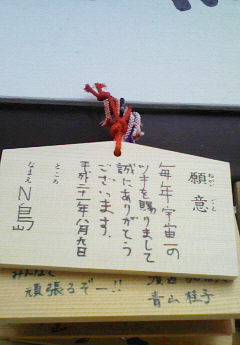 願意
ねがいごと
毎年宇宙一の
ツキを賜りまして
誠にありがとう
ございます。
平成二十一年八月九日
ところ
なまえ
N島
みんなで
頑張るぞー!!
青山 桂子